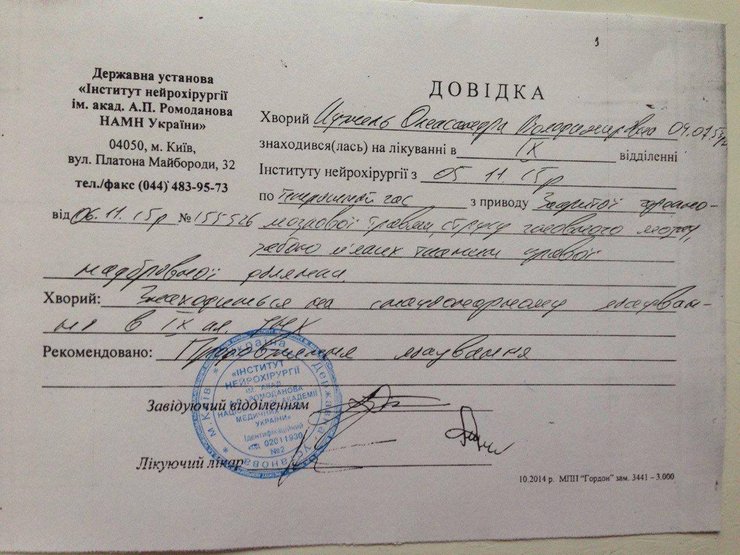 Державна установа
«Інститут нейрохірургії
ім. акад. А.П. Ромоданова
НАМН України»
04050, м. Київ,
вул. Платона Майбороди, 32
тел./факс (044) 483-95-73
від 06.11.15р № 155526
ДОВІДКА
Хворий Олександра Володимирівна
знаходився(лась) на лікуванні в ІХ відділенні
Інституту нейрохірургії з 05.11.15р
по теперішній час з приводу Закритої черепно-
мозкової травми, струсу головного мозку,
забою м'яких тканин правої
надбрівної ділянки.
Хворий: Знаходиться на стаціонарному лікуван-
ня в ІХ
Рекомендовано: Продовження лікування
Завідуючий відділенням
Лікуючий лікар
м. Київ * Україна * Державна установа
«ІНСТИТУТ
НЕЙРОХІРУРГІЇ
ІМ. АКАД.
А.П. РОМОДАНОВА
НАЦІОНАЛЬНОЇ АКАДЕМІЇ
МЕДИЧНИХ НАУК
УКРАЇНИ»
Ідентифікаційний
код 02011930
№2
10.2014 р. МПП "Гордон" зам. 3441 – 3.000